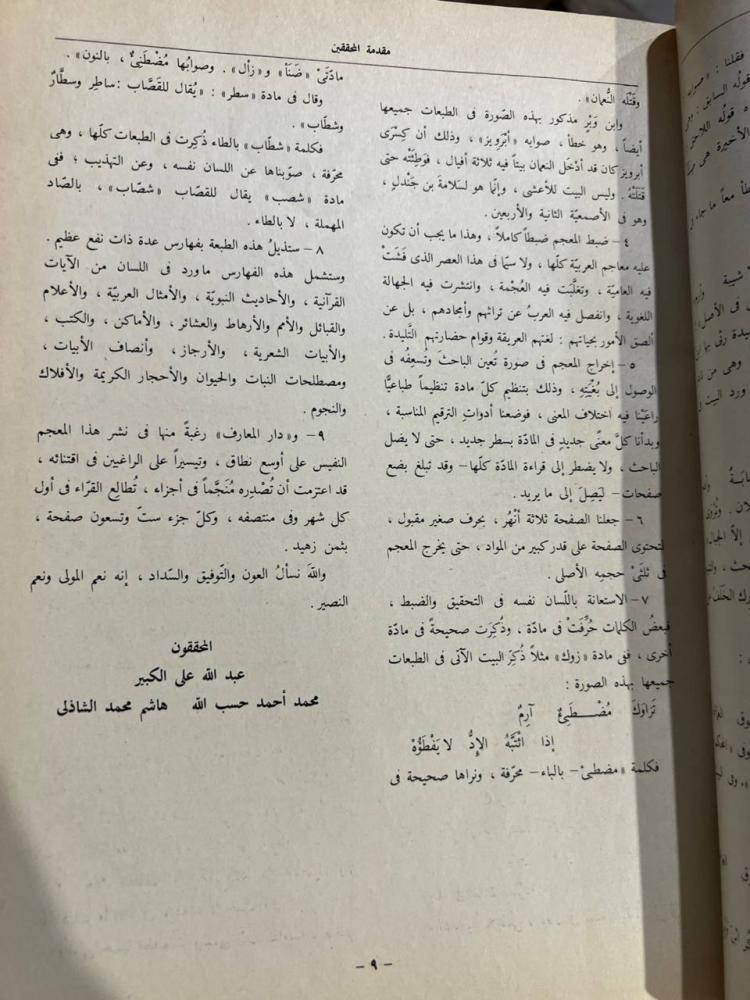 مقدمة المحققين
وقَتْله النُّعمان» .
وابن وَبْرٍ مذكور بهذه الصّورة فى الطبعات جميعها
أيضاً ، وهو خطأ ، صوابه «أبْرَويز» ، وذلك أن كِسْرَى
أبرويز كان قد أدْخَل النعمان بيتاً فيه ثلاثة أفيال ، فوَطِئَتْه حتى
قتَلَتْهُ . وليس البيت للأعشى ، وإنما هو لسَلامة بن جَنْدلٍ ،
وهو فى الأصمعيّة الثانية والأربعين .
٤ – ضبط المعجم ضبطاً كاملاً ، وهذا ما يجب أن تكون
عليه معاجم العربيّة كلّها ، ولا سيّما فى هذا العصر الذى فَشَتْ
فيه العاميّة ، وتغلَّبَت فيه العُجْمة ، وانتشرت فيه الجهالة
اللغوية ، وانفصل فيه العربُ عن تراثهم وأمجادهم ، بل عن
ألصق الأمور بحياتهم : لغتهم العريقة وقوام حضارتهم التَّليدة .
٥ – إخراج المعجم فى صورة تُعين الباحثَ وتسعِفُه فى
الوصول إلى بُغْيَتِهِ ، وذلك بتنظيم كلّ مادة تنظيماً طباعيًّا
راعَيْنا فيه اختلاف المعنى ، فوضعنا أدواتِ الترقيم المناسبة ،
وبدأنا كلَّ معنًى جديدٍ فى المادّة بسطر جديد ، حتى لا يضل
الباحث ، ولا يضطر إلى قراءة المادّة كلّها – وقد تبلغ بضع
صفحات – ليَصِلَ إلى ما يريد .
٦ – جعلنا الصفحة ثلاثة أنْهُر ، بحرف صغير مقبول ،
لتحتوى الصفحة على قدر كبير من المواد ، حتى يخرج المعجم
فى ثلثَىْ حجمه الأصلى .
٧ – الاستعانة باللسان نفسه فى التحقيق والضبط ،
فبعضُ الكلمات حُرِّفَتْ فى مادّة ، وذُكِرَت صحيحةً فى مادّة
أخرى ، فنى مادة «زوك» مثلاً ذُكِرَ البيت الآتى فى الطبعات
جميعها بهذه الصورة :
تَزاوَكَ مُضْطَبِئٌ آرِمٌ
إذا ائْتَبَّهُ الإدُّ لا يَفْطَؤُهْ
فكلمة «مضطبىْ – بالباء – محرّفة ، ونراها صحيحة فى
مادّتَىْ «ضَنَأ» و«زأل» . وصوابُها مُضْطَنِئٌ ، بالنون» .
وقال فى مادة «سطر» : «يُقال للقَصَّاب : ساطِر وسطَّارٌ
وشطّاب» .
فكلمة «شطّاب» بالطاء ذُكِرت فى الطبعات كلّها ، وهى
محرّفة ، صوّبناها عن اللسان نفسه ، وعن التهذيب ؛ ففى
مادة «شصب» يقال للقصّاب «شصّاب» ، بالصّاد
المهملة ، لا بالطاء .
٨ – ستذيلُ هذه الطبعة بفهارس عدة ذات نفع عظيم .
وستشمل هذه الفهارس ماورد فى اللسان من الآيات
القرآنية ، والأحاديث النبويّة ، والأمثال العربيّة ، والأعلام
والقبائل والأمم والأرهاط والعشائر ، والأماكن ، والكتب ،
والأبيات الشعرية ، والأرجاز ، وأنصاف الأبيات ،
ومصطلحات النبات والحيوان والأحجار الكريمة والأفلاك
والنجوم .
٩ – و«دار المعارف» رغبةً منها فى نشر هذا المعجم
النفيس على أوسع نطاق ، وتيسيراً على الراغبين فى اقتنائه ،
قد اعتزمت أن تُصْدِره مُنَجَّماً فى أجزاء ، تُطالِع القرّاء فى أول
كل شهر وفى منتصفه ، وكلّ جزء ستّ وتسعون صفحة ،
بثمن زهيد .
واللهَ نسألُ العون والتّوفيق والسّداد ، إنه نعم المولى ونعم
النصير .
المحققون
عبد الله على الكبير
محمد أحمد حسب الله هاشم محمد الشاذلى
– ٩ –